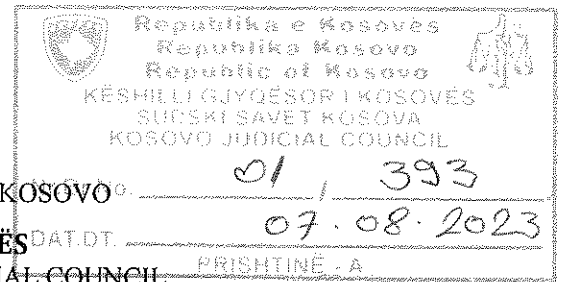 Republika e Kosovës
Republika Kosovo
Republic of Kosovo
KËSHILLI GJYQËSOR I KOSOVËS
SUDSKI SAVET KOSOVA
KOSOVO JUDICIAL COUNCIL
KOSOVO No. 01 / 393
ËS DAT.DT. 07.08.2023
PRISHTINË - A
IAL COUNCIL